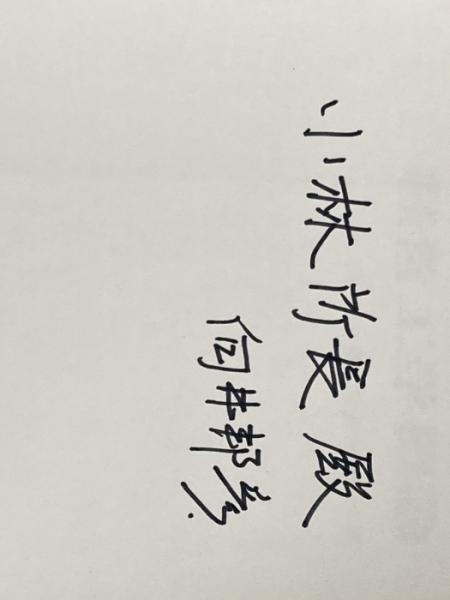 小林所長殿
向井邦彦